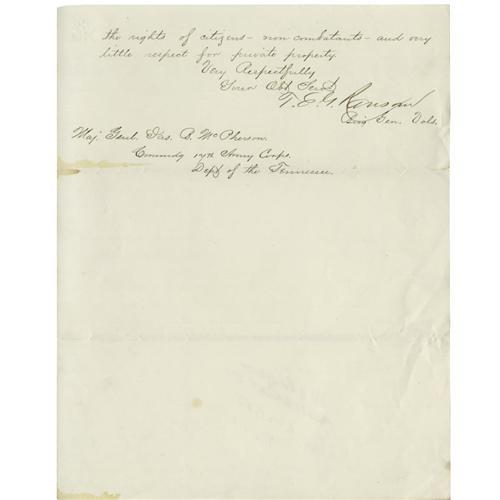 the rights of citizens - non combatants - and very
little respect for private property.
Very Respectfully
Your Obt Servt
T. E. G. Ransom
Brig Gen. Vols.
Maj. Genl. Jas. B. McPherson.
Commdg 17th Army Corps.
Dept of the Tennessee.